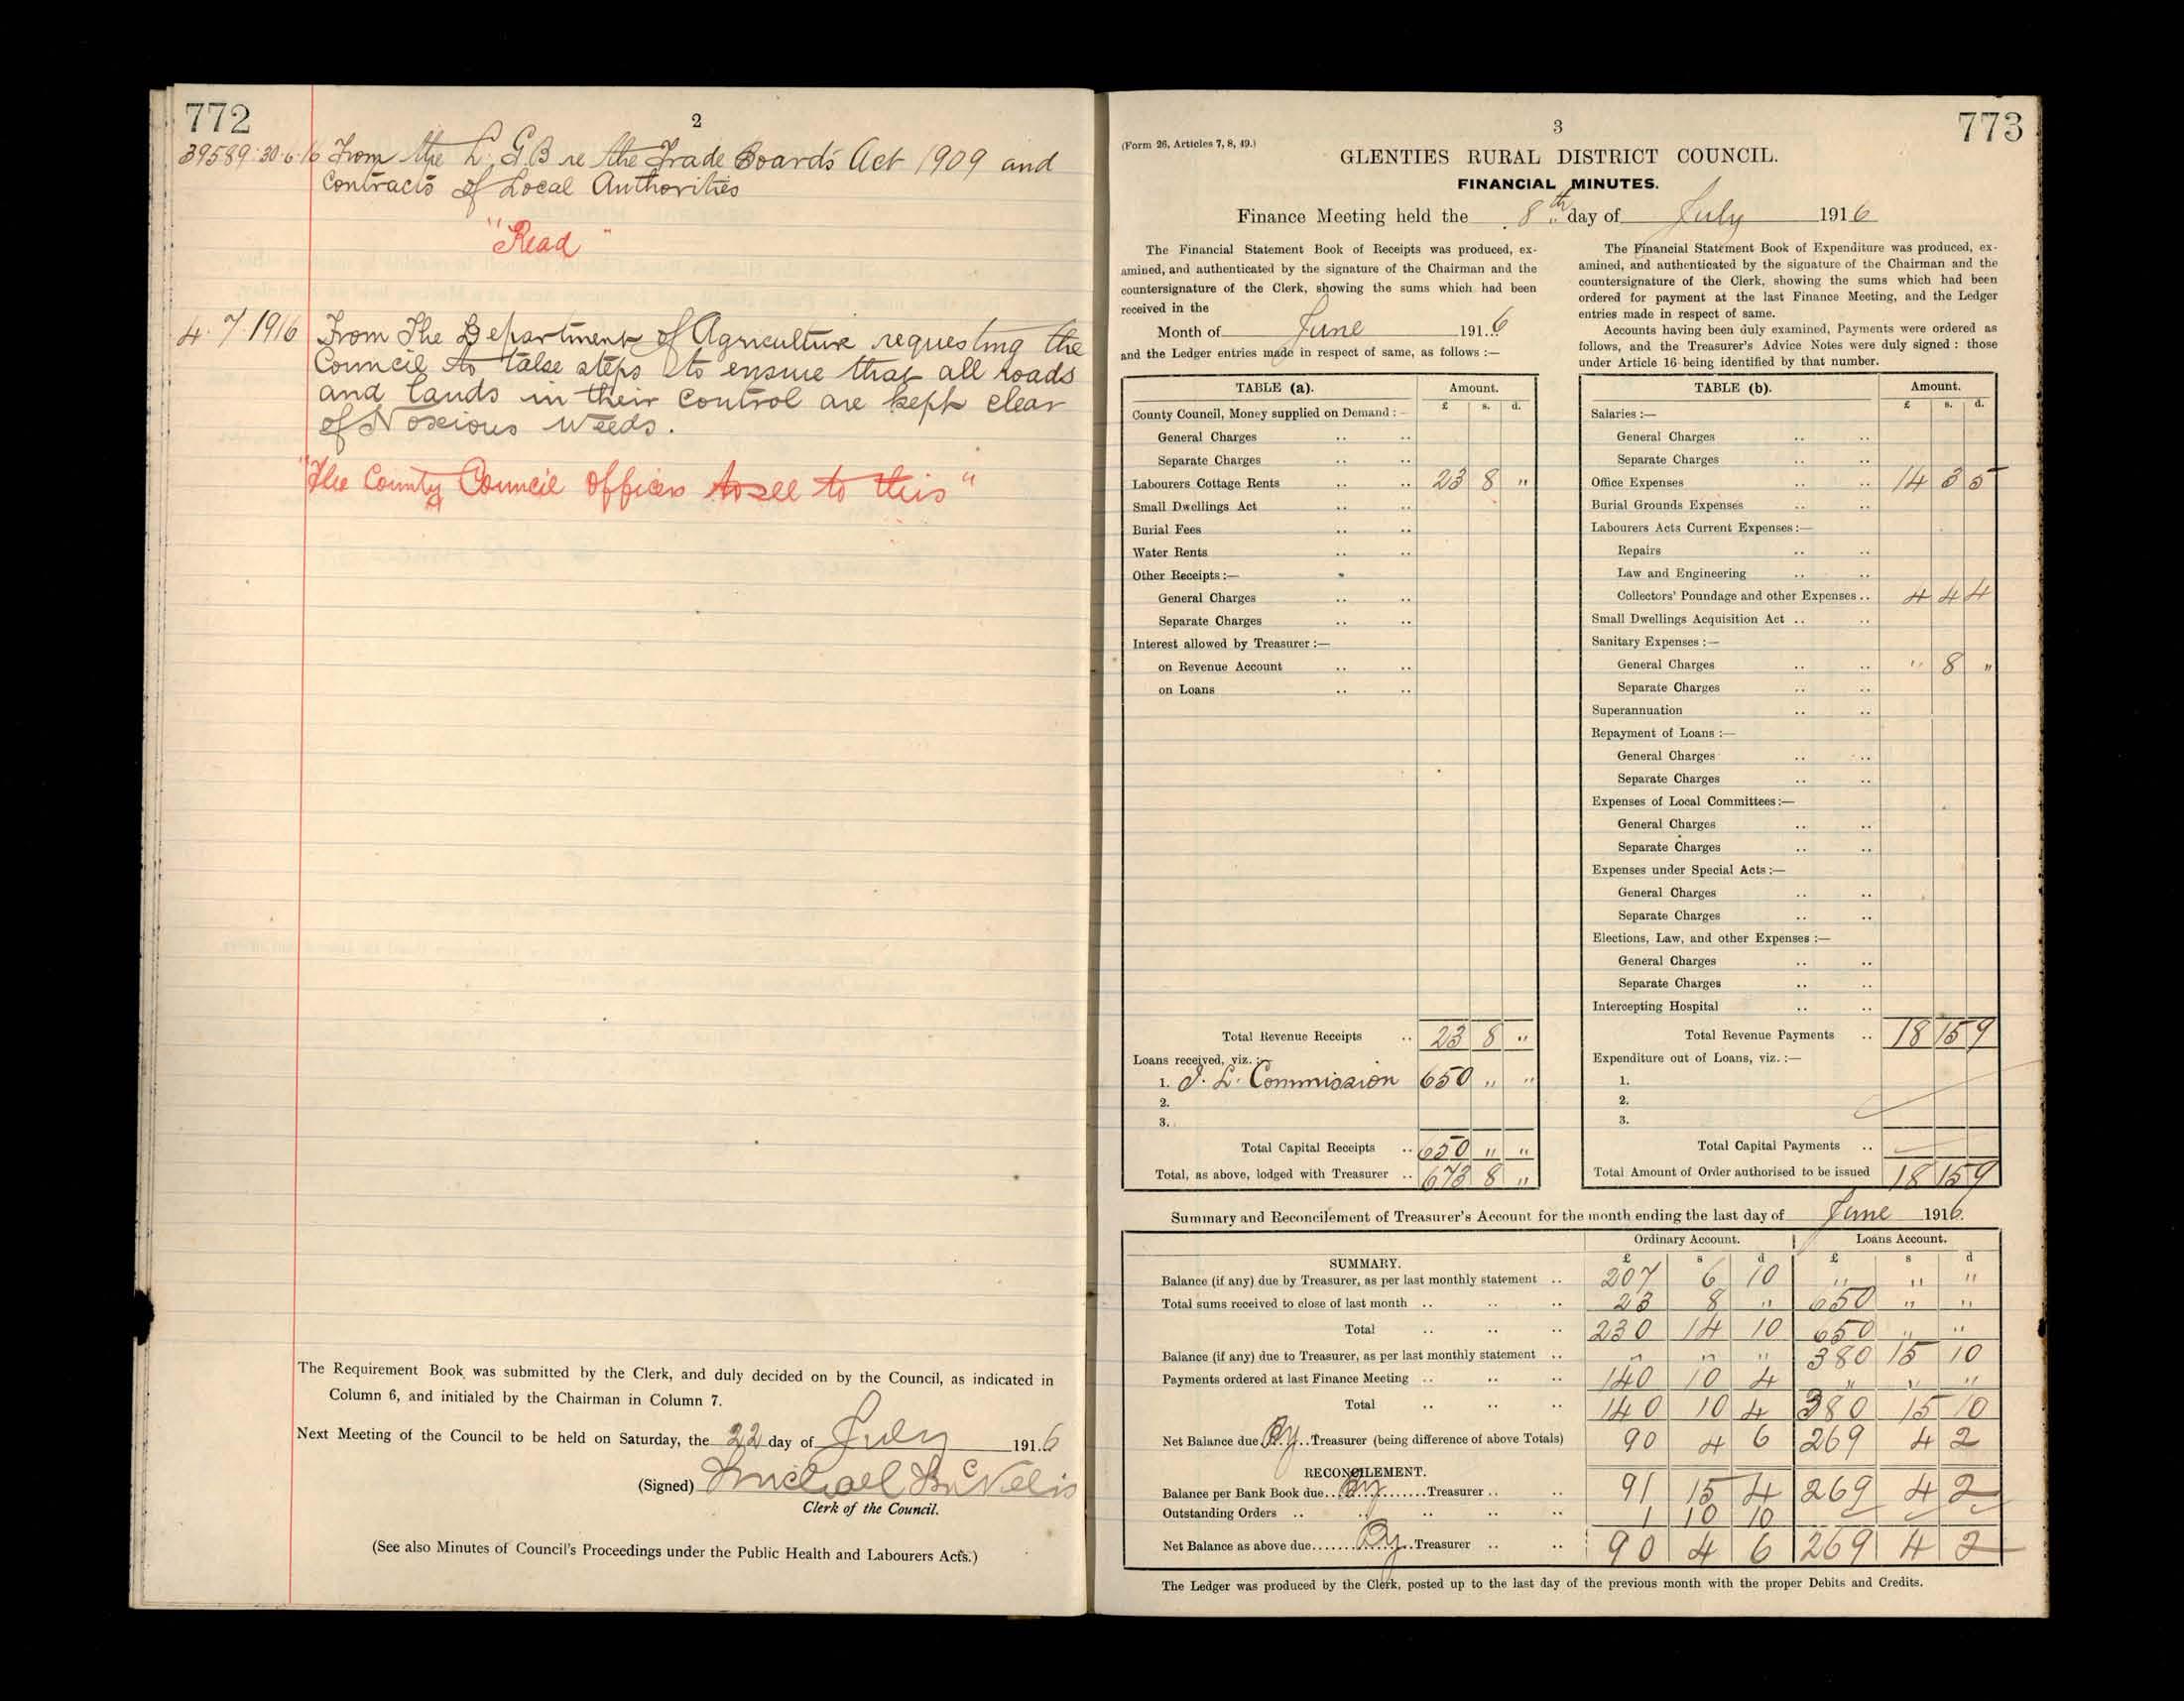 772
2
39589 30·6·16 From the L. G. B re the Trade Boards Act 1909 and
Contracts of Local Authorities
"Read"
4. 7. 1916 From The Department of Agriculture requesting the
Council to take steps to ensure that all roads
and lands in their control are kept clear
of Noxious Weeds.
"The County Council Officers to see to this"
The Requirement Book was submitted by the Clerk, and duly decided on by the Council, as indicated in
Column 6, and initialed by the Chairman in Column 7.
Next Meeting of the Council to be held on Saturday, the 22 day of July 1916
(Signed) Michael McNelis
Clerk of the Council.
(See also Minutes of Council's Proceedings under the Public Health and Labourers Acts.)
3
773
(Form 26, Articles 7, 8, 49.)
GLENTIES RURAL DISTRICT COUNCIL.
FINANCIAL MINUTES.
Finance Meeting held the 8th day of July 1916
The Financial Statement Book of Receipts was produced, ex-
amined, and authenticated by the signature of the Chairman and the
countersignature of the Clerk, showing the sums which had been
received in the
Month of June 1916
and the Ledger entries made in respect of same, as follows :—
TABLE (a). Amount.
£ s. d.
County Council, Money supplied on Demand :-
General Charges .. ..
Separate Charges .. ..
Labourers Cottage Rents .. .. 23 8 "
Small Dwellings Act .. ..
Burial Fees .. ..
Water Rents .. ..
Other Receipts :—
General Charges .. ..
Separate Charges .. ..
Interest allowed by Treasurer :—
on Revenue Account .. ..
on Loans .. ..
Total Revenue Receipts .. 23 8 "
Loans received, viz. :—
1. I. L. Commission 650 " "
2.
3.
Total Capital Receipts .. 650 " "
Total, as above, lodged with Treasurer .. 673 8 "
The Financial Statement Book of Expenditure was produced, ex-
amined, and authenticated by the signature of the Chairman and the
countersignature of the Clerk, showing the sums which had been
ordered for payment at the last Finance Meeting, and the Ledger
entries made in respect of same.
Accounts having been duly examined, Payments were ordered as
follows, and the Treasurer's Advice Notes were duly signed : those
under Article 16 being identified by that number.
TABLE (b). Amount.
£ s. d.
Salaries :—
General Charges .. ..
Separate Charges .. ..
Office Expenses .. .. 14 3 5
Burial Grounds Expenses .. ..
Labourers Acts Current Expenses :—
Repairs .. ..
Law and Engineering .. ..
Collectors' Poundage and other Expenses .. 4 4 4
Small Dwellings Acquisition Act .. ..
Sanitary Expenses :—
General Charges .. .. " 8 "
Separate Charges .. ..
Superannuation .. ..
Repayment of Loans :—
General Charges .. ..
Separate Charges .. ..
Expenses of Local Committees :—
General Charges .. ..
Separate Charges .. ..
Expenses under Special Acts :—
General Charges .. ..
Separate Charges .. ..
Elections, Law, and other Expenses :—
General Charges .. ..
Separate Charges .. ..
Intercepting Hospital .. ..
Total Revenue Payments .. 18 15 9
Expenditure out of Loans, viz. :—
1.
2.
3.
Total Capital Payments ..
Total Amount of Order authorised to be issued 18 15 9
Summary and Reconcilement of Treasurer's Account for the month ending the last day of June 1916.
Ordinary Account. Loans Account.
SUMMARY. £ s d £ s d
Balance (if any) due by Treasurer, as per last monthly statement .. 207 6 10 " " "
Total sums received to close of last month .. .. .. 23 8 " 650 " "
Total .. .. .. 230 14 10 650 " "
Balance (if any) due to Treasurer, as per last monthly statement .. " " " 380 15 10
Payments ordered at last Finance Meeting .. .. .. 140 10 4 " " "
Total .. .. .. 140 10 4 380 15 10
Net Balance due By Treasurer (being difference of above Totals) 90 4 6 269 4 2
RECONCILEMENT.
Balance per Bank Book due By Treasurer .. .. 91 15 4 269 4 2
Outstanding Orders .. .. .. .. .. 1 10 10
Net Balance as above due By Treasurer .. .. 90 4 6 269 4 2
The Ledger was produced by the Clerk, posted up to the last day of the previous month with the proper Debits and Credits.